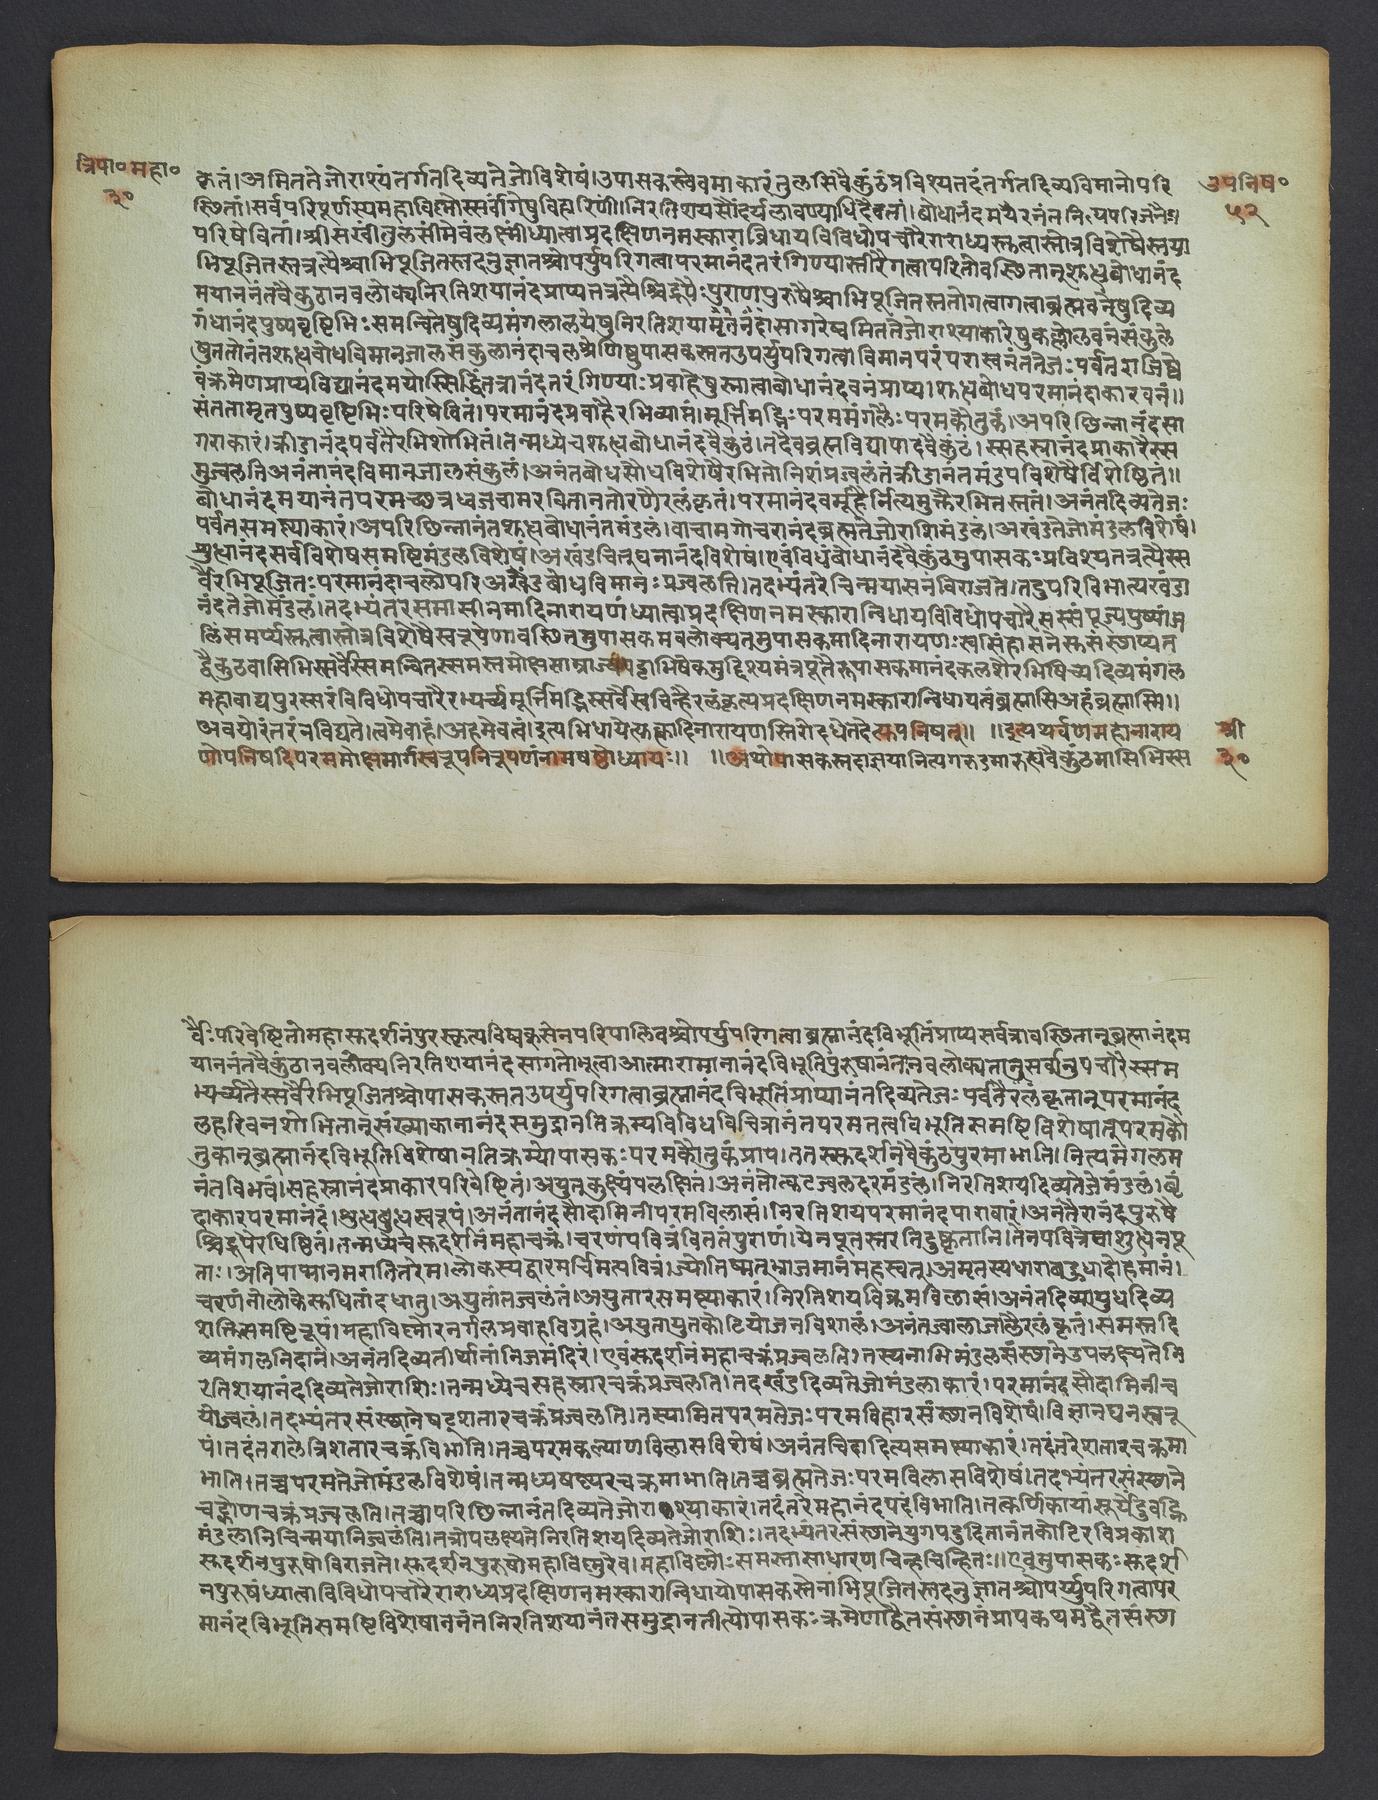 त्रिपा॰महा॰
३०
उपनिष॰
५२
कृतं।अमिततेजोराश्यंतर्गतदिव्यतेजोविशेषं।उपासकस्त्वेवमाकारंतुलसिवैकुंठंप्रविश्यतदंतर्गतदिव्यविमानोपरि
स्थितां।सर्वपरिपूर्णस्यमहाविष्णोस्सर्वांगेषुविहारिणीं।निरतिशयसौंदर्यलावण्याधिदेवतां।बोधानंदमयैरनंतनित्यपरिजनैश्च
परिषेवितां।श्रीसखींतुलसीमेवंलक्ष्मींध्यात्वाप्रदक्षिणनमस्कारान्विधायविविधोपचारैराराध्यस्तुत्वास्तोत्रविशेषैस्तया
भिपूजितस्तत्रत्यैश्चाभिपूजितस्तदनुज्ञातश्चोपर्युपरिगत्वापरमानंदतरंगिण्यास्तीरेगत्वापरितोवस्थितान्शुद्धबोधानंद
मयाननंतवैकुंठानवलोक्यनिरतिशयानंदंप्राप्यतत्रत्यैश्चिद्रूपैःपुराणपुरुषैश्चाभिपूजितस्ततोगत्वागत्वाब्रह्मवनेषुदिव्य
गंधानंदपुष्पवृष्टिभिःसमन्वितेषुदिव्यमंगलालयेषुनिरतिशयामृतानंदसागरेष्वमिततेजोराश्याकारेषुकल्लोलवनसंकुले
षुततोनंतशुद्धबोधविमानजालसंकुलानंदाचलश्रेणिषूपासकस्ततउपर्युपरिगत्वाविमानपरंपरास्वनंततेजःपर्वतराजिष्वे
वंक्रमेणप्राप्यविद्यानंदमयोस्संधिंतत्रानंदतरंगिण्याःप्रवाहेषुस्नात्वाबोधानंदवनंप्राप्य।शुद्धबोधपरमानंदाकारवनं॥
संततामृतपुष्पवृष्टिभिःपरिषेवितं।परमानंदप्रवाहैरभिव्याप्तं।मूर्त्तिमद्भिःपरममंगलैःपरमकौतुकं।अपरिछिन्नानंदसा
गराकारं।क्रीडानंदपर्वतैरभिशोभितं।तन्मध्येचशुद्धबोधानंदवैकुंठं।तदेवब्रह्मविद्यापादवैकुंठं।स्सहस्रानंदप्राकारैस्स
मुज्वलतिअनंतानंदविमानजालसंकुलं।अनंतबोधसौधविशेषैरभितोनिशंप्रज्वलंतंक्रीडानंतमंडपविशेषैर्विशेषितं॥
बोधानंदमयानंतपरमच्छत्रध्वजचामरवितानतोरणैरलंकृतं।परमानंदव्यूहैर्नित्यमुक्तैरभितस्ततं।अनंतदिव्यतेजः
पर्वतसमष्ट्याकारं।अपरिछिन्नानंतशुद्धबोधानंतमंडलं।वाचामगोचरानंदब्रह्मतेजोराशिमंडलं।अखंडतेजोमंडलविशेषं।
शुद्धानंदसर्वविशेषसमष्टिमंडलविशेषं।अखंडचित्घनानंदविशेषं।एवंविधंबोधानंदवैकुंठमुपासकःप्रविश्यतत्रत्यैस्स
र्वैरभिपूजितःपरमानंदाचलोपरिअखंडबोधविमानःप्रज्वलति।तदभ्यंतरेचिन्मयासनंविराजते।तदुपरिविभात्यखंडा
नंदतेजोमंडलं।तदभ्यंतरसमासीनमादिनारायणंध्यात्वाप्रदक्षिणनमस्कारान्विधायविविधोपचारैसुस्संपूज्यपुष्पांज
लिंसमर्प्यस्तुत्वास्तोत्रविशेषैस्वरूपेणावस्थितमुपासकमवलोक्यतमुपासकमादिनारायणःस्वसिंहासनेसुसंस्थाप्यत
द्वैकुंठवासिभिस्सर्वैस्समन्वितस्समस्तमोक्षसाम्राज्यपट्टाभिषेकमुद्दिश्यमंत्रपूतैरुपासकमानंदकलशैरभिषिच्यदिव्यमंगल
महावाद्यपुरस्सरंविविधोपचारैरभ्यर्च्यमूर्त्तिमद्भिस्सर्वैस्वचिन्हैरलंकृत्यप्रदक्षिणनमस्कारान्विधायत्वंब्रह्मासिअहंब्रह्मास्मि॥
अवयोरंतरंनविद्यते।त्वमेवाहं।अहमेवत्वं।इत्यभिधायेत्युक्त्वादिनारायणस्तिरोदधेतदेत्युपनिषत्॥ ॥इत्यथर्वणमहानाराय
श्री
णोपनिषदिपरममोक्षमार्गस्वरूपनिरूपणंनामषष्ठोध्यायः॥ ॥अथोपासकस्तदाज्ञयानित्यगरुडमारुह्यवैकुंठवासिभिस्स
३०
र्वैःपरिवेष्टितोमहासुदर्शनंपुरस्कृत्यविष्वक्सेनपरिपालितश्चोपर्युपरिगत्वाब्रह्मानंदविभूतिंप्राप्यसर्वत्रावस्थितान्ब्रह्मानंदम
याननंतवैकुंठानवलोक्यनिरतिशयानंदसागरोभूत्वाआत्मारामानानंदविभूतिपुरुषाननंतानवलोक्यतान्सर्वानुपचारैस्सम
भ्यर्च्यतैस्सर्वैरभिपूजितश्चोपासकस्ततउपर्युपरिगत्वाब्रह्मानंदविभूतिंप्राप्यानंतदिव्यतेजःपर्वतैरलंकृतान्परमानंद
लहरिवनशोभितान्संख्याकानानंदसमुद्रानतिक्रम्यविविधविचित्रानंतपरमतत्वविभूतिसमष्टिविशेषान्परमकौ
तुकान्ब्रह्मानंदविभूतिविशेषानतिक्रम्योपासकःपरमकौतुकंप्राप।ततस्सुदर्शनवैकुंठपुरमाभाति।नित्यमंगलम
नंतविभवं।सहस्रानंदप्राकारपरिवेष्टितं।अयुतकुक्ष्युपलक्षितं।अनंतोत्कटज्वलदरमंडलं।निरतिशयदिव्यतेजोमंडलं।वृं
दाकारपरमानंदं।शुद्धबुद्धस्वरूपं।अनंतानंदसौदामिनीपरमविलासं।निरतिशयपरमानंदपारावारं।अनंतैरानंदपुरुषै
श्चिद्रूपैरधिष्ठितं।तन्मध्येचसुदर्शनंमहाचक्रं।चरणंपवित्रंविततंपुराणं।येनपूतस्तरतिदुष्कृतानि।तेनपवित्रेणशुद्धेनपू
ताः।अतिपाप्मानमरातिंतरेम।लोकस्यद्वारमर्चिमत्पवित्रं।ज्योतिष्मत्भ्राजमानंमहस्वत्।अमृतस्यधाराबहुधादोहमानं।
चरणंनोलोकेसुधितांदधातु।अयुतारंज्वलंतं।अयुतारसमष्ट्याकारं।निरतिशयविक्रमविलासं।अनंतदिव्यायुधदिव्य
शक्तिसमष्टिरूपं।महाविष्णोरनर्गलप्रवाहविग्रहं।अयुतायुतकोटियोजनविशालं।अनंतज्वालाजालैरलंकृतं।समस्तदि
व्यमंगलनिदानं।अनंतदिव्यतीर्थानांनिजमंदिरं।एवंसुदर्शनंमहाचक्रंप्रज्वलति।तस्यनाभिमंडलसंस्थानेउपलक्ष्यतेनि
रतिशयानंददिव्यतेजोराशिः।तन्मध्येचसहस्रारचक्रंप्रज्वलति।तदखंडदिव्यतेजोमंडलाकारं।परमानंदसौदामिनीच
योज्वलं।तदभ्यंतरसंस्थानेषट्शतारचक्रंप्रज्वलति।तस्यामितपरमतेजःपरमविहारसंस्थानविशेषं।विज्ञानघनस्वरू
पं।तदंतरालेत्रिशतारचक्रंविभाति।तच्चपरमकल्याणविलासविशेषं।अनंतचिदादित्यसमष्ट्याकारं।तदंतरेशतारचक्रमा
भाति।तच्चपरमतेजोमंडलविशेषं।तन्मध्यषष्ट्यरचक्रमाभाति।तच्चब्रह्मतेजःपरमविलासविशेषं।तदभ्यंतरसंस्थाने
षट्कोणचक्रंप्रज्वलति।तच्चापरिछिन्नानंतदिव्यतेजोराश्याकारं।तदंतरेमहानंदपदंविभाति।तत्कर्णिकायांसूर्येंदुवह्नि
मंडलानिचिन्मयानिज्वलंति।तत्रोपलक्ष्यतेनिरतिशयदिव्यतेजोराशिः।तदभ्यंतरसंस्थानेयुगपदुदितानंतकोटिरविप्रकाश
सुदर्शनपुरुषोविराजते।सुदर्शनपुरुषोमहाविष्णुरेव।महाविष्णोःसमस्तासाधारणचिन्हचिन्हितः॥एवमुपासकःसुदर्श
नपुरुषंध्यात्वाविविधोपचारैराराध्यप्रदक्षिणनमस्कारान्विधायोपासकस्तेनाभिपूजितस्तदनुज्ञातश्चोपर्युपरिगत्वापर
मानंदविभूतिसमष्टिविशेषाननंतनिरतिशयानंतसमुद्रानतीत्योपासकःक्रमेणाद्वैतसंस्थानंप्रापकथमद्वैतसंस्था